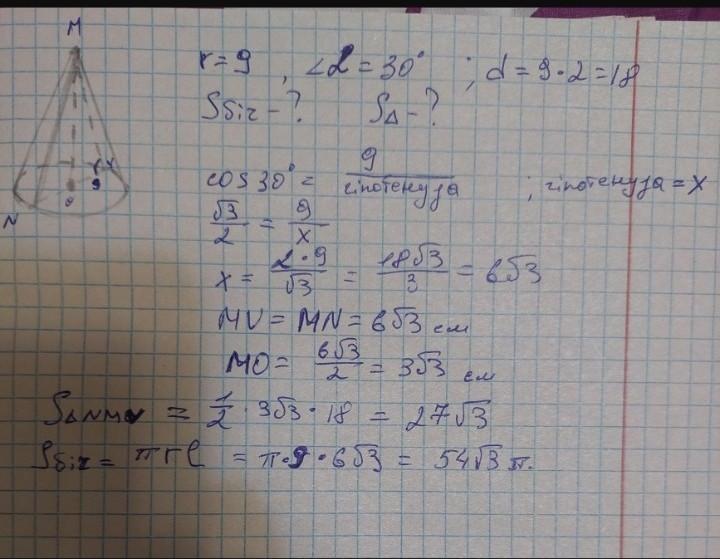 M
r=9 , ∠α=30° ; d=9·2=18
Sбіч-? S△-?
cos30°= 9/гіпотенуза ; гіпотенуза=x
√3/2 = 9/x
x= 2·9/√3 = 18√3/3 = 6√3
MV=MN=6√3 см
MO= 6√3/2 = 3√3 см
S△NMV = 1/2·3√3·18 = 27√3
Sбіч= πrl = π·9·6√3 = 54√3 π.
N
O
9